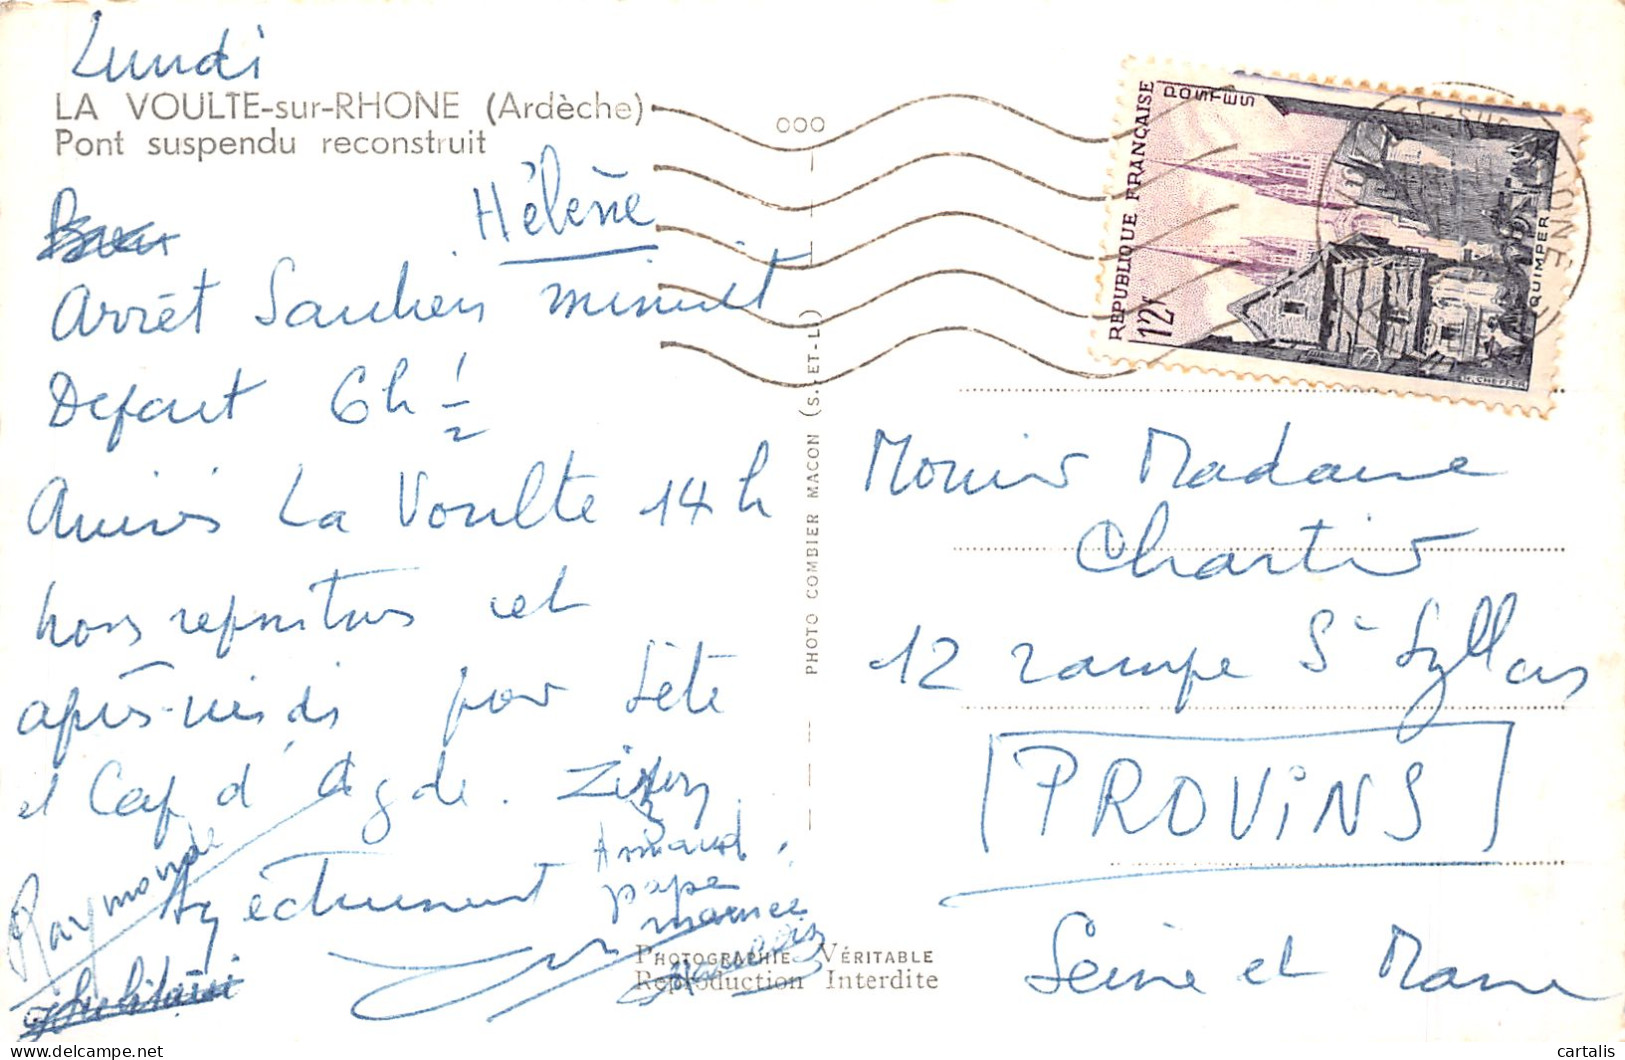 Lundi
LA VOULTE-sur-RHONE (Ardèche)
Pont suspendu reconstruit
Hélène
Arrêt Saulieu minuit
Depart 6h 1/2
Arrivés La Voulte 14 h
hors repartons cet
après-midi pour Sète
et Cap d'Agde.
Raymonde
Affectueusement
Armand
papa
mamee
000
PHOTO COMBIER MACON (S.-ET-L.)
PHOTOGRAPHIE VÉRITABLE
Reproduction Interdite
REPUBLIQUE FRANÇAISE
POSTES
12f
QUIMPER
H. CHEFFER
Monsieur Madame
Chartier
12 rampe St Syllas
PROVINS
Seine et Marne
cartalis